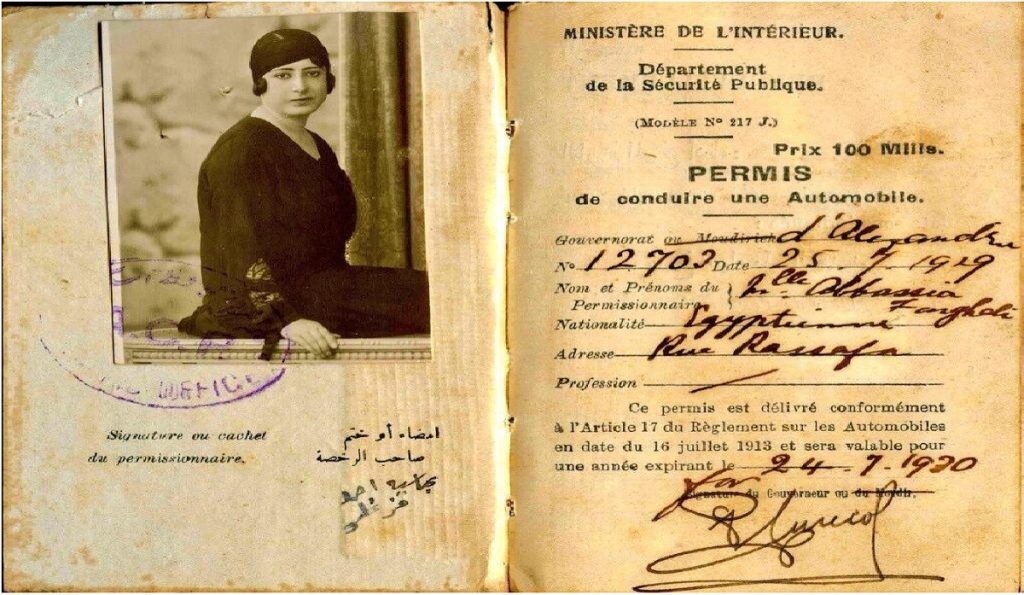 Signature ou cachet
du permissionnaire.
امضاء أو ختم
صاحب الرخصة
عباسيه احمد
فرغلى
MINISTÈRE DE L'INTÉRIEUR.
Département
de la Sécurité Publique.
(MODÈLE N° 217 J.)
Prix 100 Mills.
PERMIS
de conduire une Automobile.
Gouvernorat ou Moudirieh d'Alexandrie
N° 12703 Date 25 . 7 . 1929
Nom et Prénoms du } Mlle Abbassia
Permissionnaire Farghali
Nationalité Egyptienne
Adresse Rue Rassafa
Profession
Ce permis est délivré conformément
à l'Article 17 du Règlement sur les Automobiles
en date du 16 juillet 1913 et sera valable pour
une année expirant le 24 . 7 . 1930
for
Signature du Gouverneur ou du Moudir.